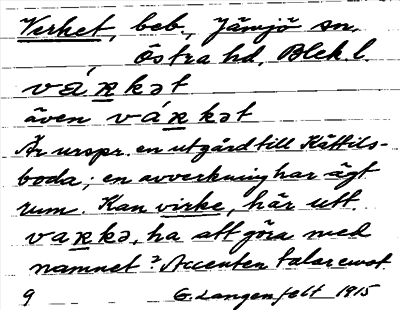 Verket, beb., Jämjö sn.
Östra hd, Blek. l.
vá́ʀkət
även váʀkət
Är urspr. en utgård till Kättils-
boda; en avverkning har ägt
rum. Kan virke, här utt.
vaʀkə, ha att göra med
namnet? Accenten talar emot.
9 G. Langenfelt 1915